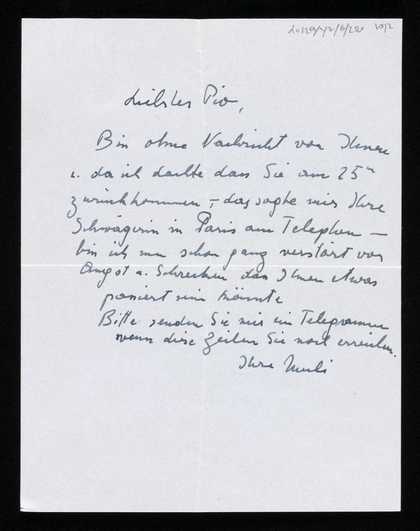 Liebster Pio,
Bin ohne Nachricht von Ihnen
u. da ich dachte dass Sie am 25ten
zurückkommen – das sagte mir Ihre
Schwägerin in Paris am Telephon –
bin ich nun schon ganz verstört vor
Angst u. Schrecken das Ihnen etwas
passiert sein könnte
Bitte senden Sie mir ein Telegramm
wenn diese Zeilen Sie noch erreichen.
Ihre